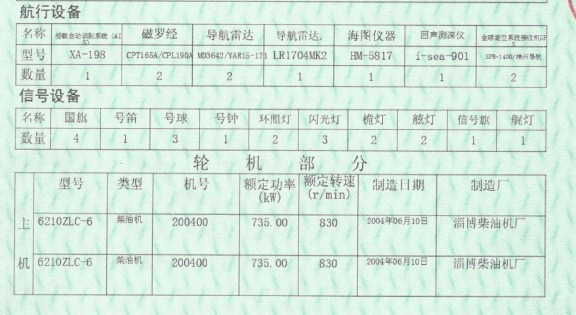 航行设备
名称 船载自动识别系统（AIS） 磁罗经 导航雷达 导航雷达. 海图仪器 回声测深仪 全球定位系统接收机GPS
型号 XA-198 CPT165A/CPL190A MD3642/YAR15-171 LR1704MK2 HM-5817 i-sea-901 SPR-1400/神州导航
数量 1 2 2 1 1 1 2
信号设备
名称 国旗 号笛 号球 号钟 环照灯 闪光灯 桅灯 舷灯 信号旗 艇灯
数量 4 1 3 1 2 3 2 2 1 1
轮机部分
型号 类型 机号 额定功率(kW) 额定转速(r/min) 制造日期 制造厂
主 6210ZLC-6 柴油机 200400 735.00 830 2004年06月10日 淄博柴油机厂
机 6210ZLC-6 柴油机 200400 735.00 830 2004年06月10日 淄博柴油机厂